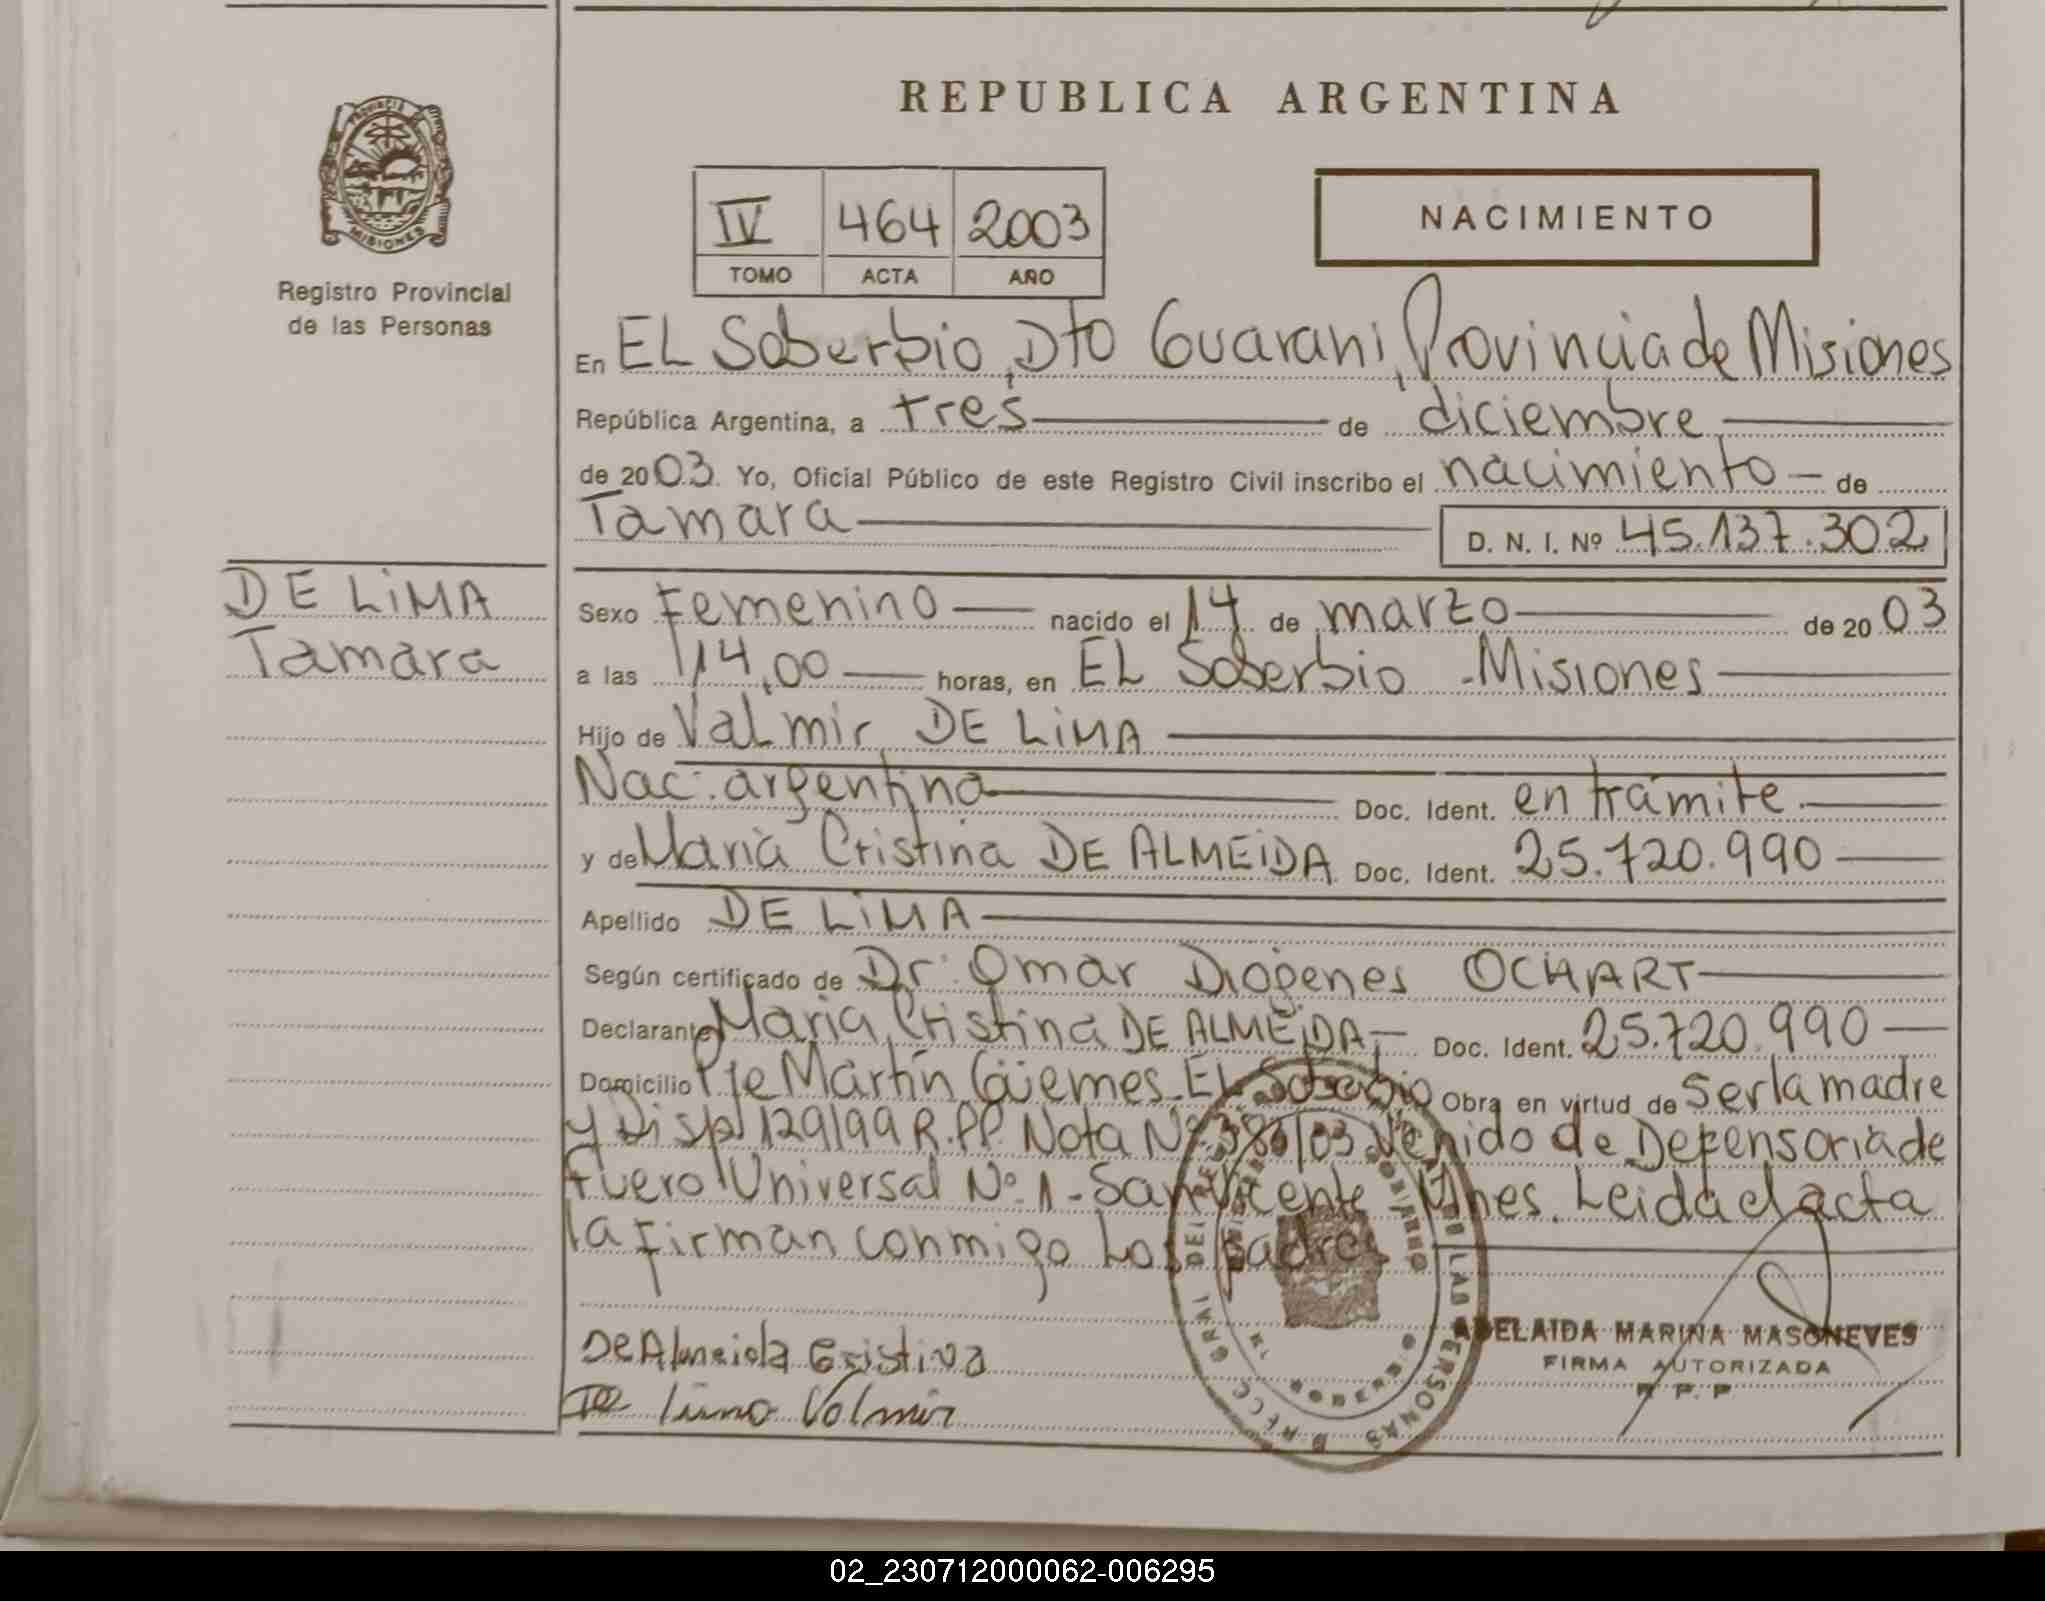 REPUBLICA ARGENTINA
PROVINCIA
MISIONES
Registro Provincial
de las Personas
IV 464 2003
TOMO ACTA AÑO
NACIMIENTO
En EL Soberbio, Dto Guarani, Provincia de Misiones
República Argentina, a tres de diciembre
de 2003. Yo, Oficial Público de este Registro Civil inscribo el nacimiento de
Tamara D. N. I. Nº 45.137.302
DE LiMA
Tamara
Sexo Femenino nacido el 14 de marzo de 2003
a las 14,00 horas, en EL Soberbio - Misiones
Hijo de Valmir DE LiMA
Nac: argentina Doc. Ident. en trámite.
y de Maria Cristina DE ALMEiDA Doc. Ident. 25.720.990
Apellido DE LiMA
Según certificado de Dr: Omar Diógenes OCHART
Declarante Maria Cristina DE ALMEiDA Doc. Ident. 25.720.990
Domicilio Pje Martín Güemes - EL Soberbio Obra en virtud de Ser la madre
y Disp 129/99 R.P.P. Nota Nº 380/03 Venido de Defensoria de
Fuero Universal Nº 1 - San Vicente Mnes. Leida el acta
la firman conmigo Los padres
De Almeida Cristina
De Lima Valmir
ADELAIDA MARINA MASONEVES
FIRMA AUTORIZADA
R P. P
02_230712000062-006295